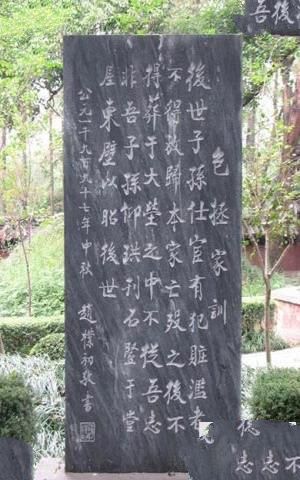 包拯家訓
後世子孫仕宦有犯贓濫者
不得放歸本家亡殁之後不
得葬于大塋之中不從吾志
非吾子孫仰珙刊石竪于堂
屋東壁以昭後世
公元一千九百九十七年中秋 趙樸初敬書
吾
志
志不